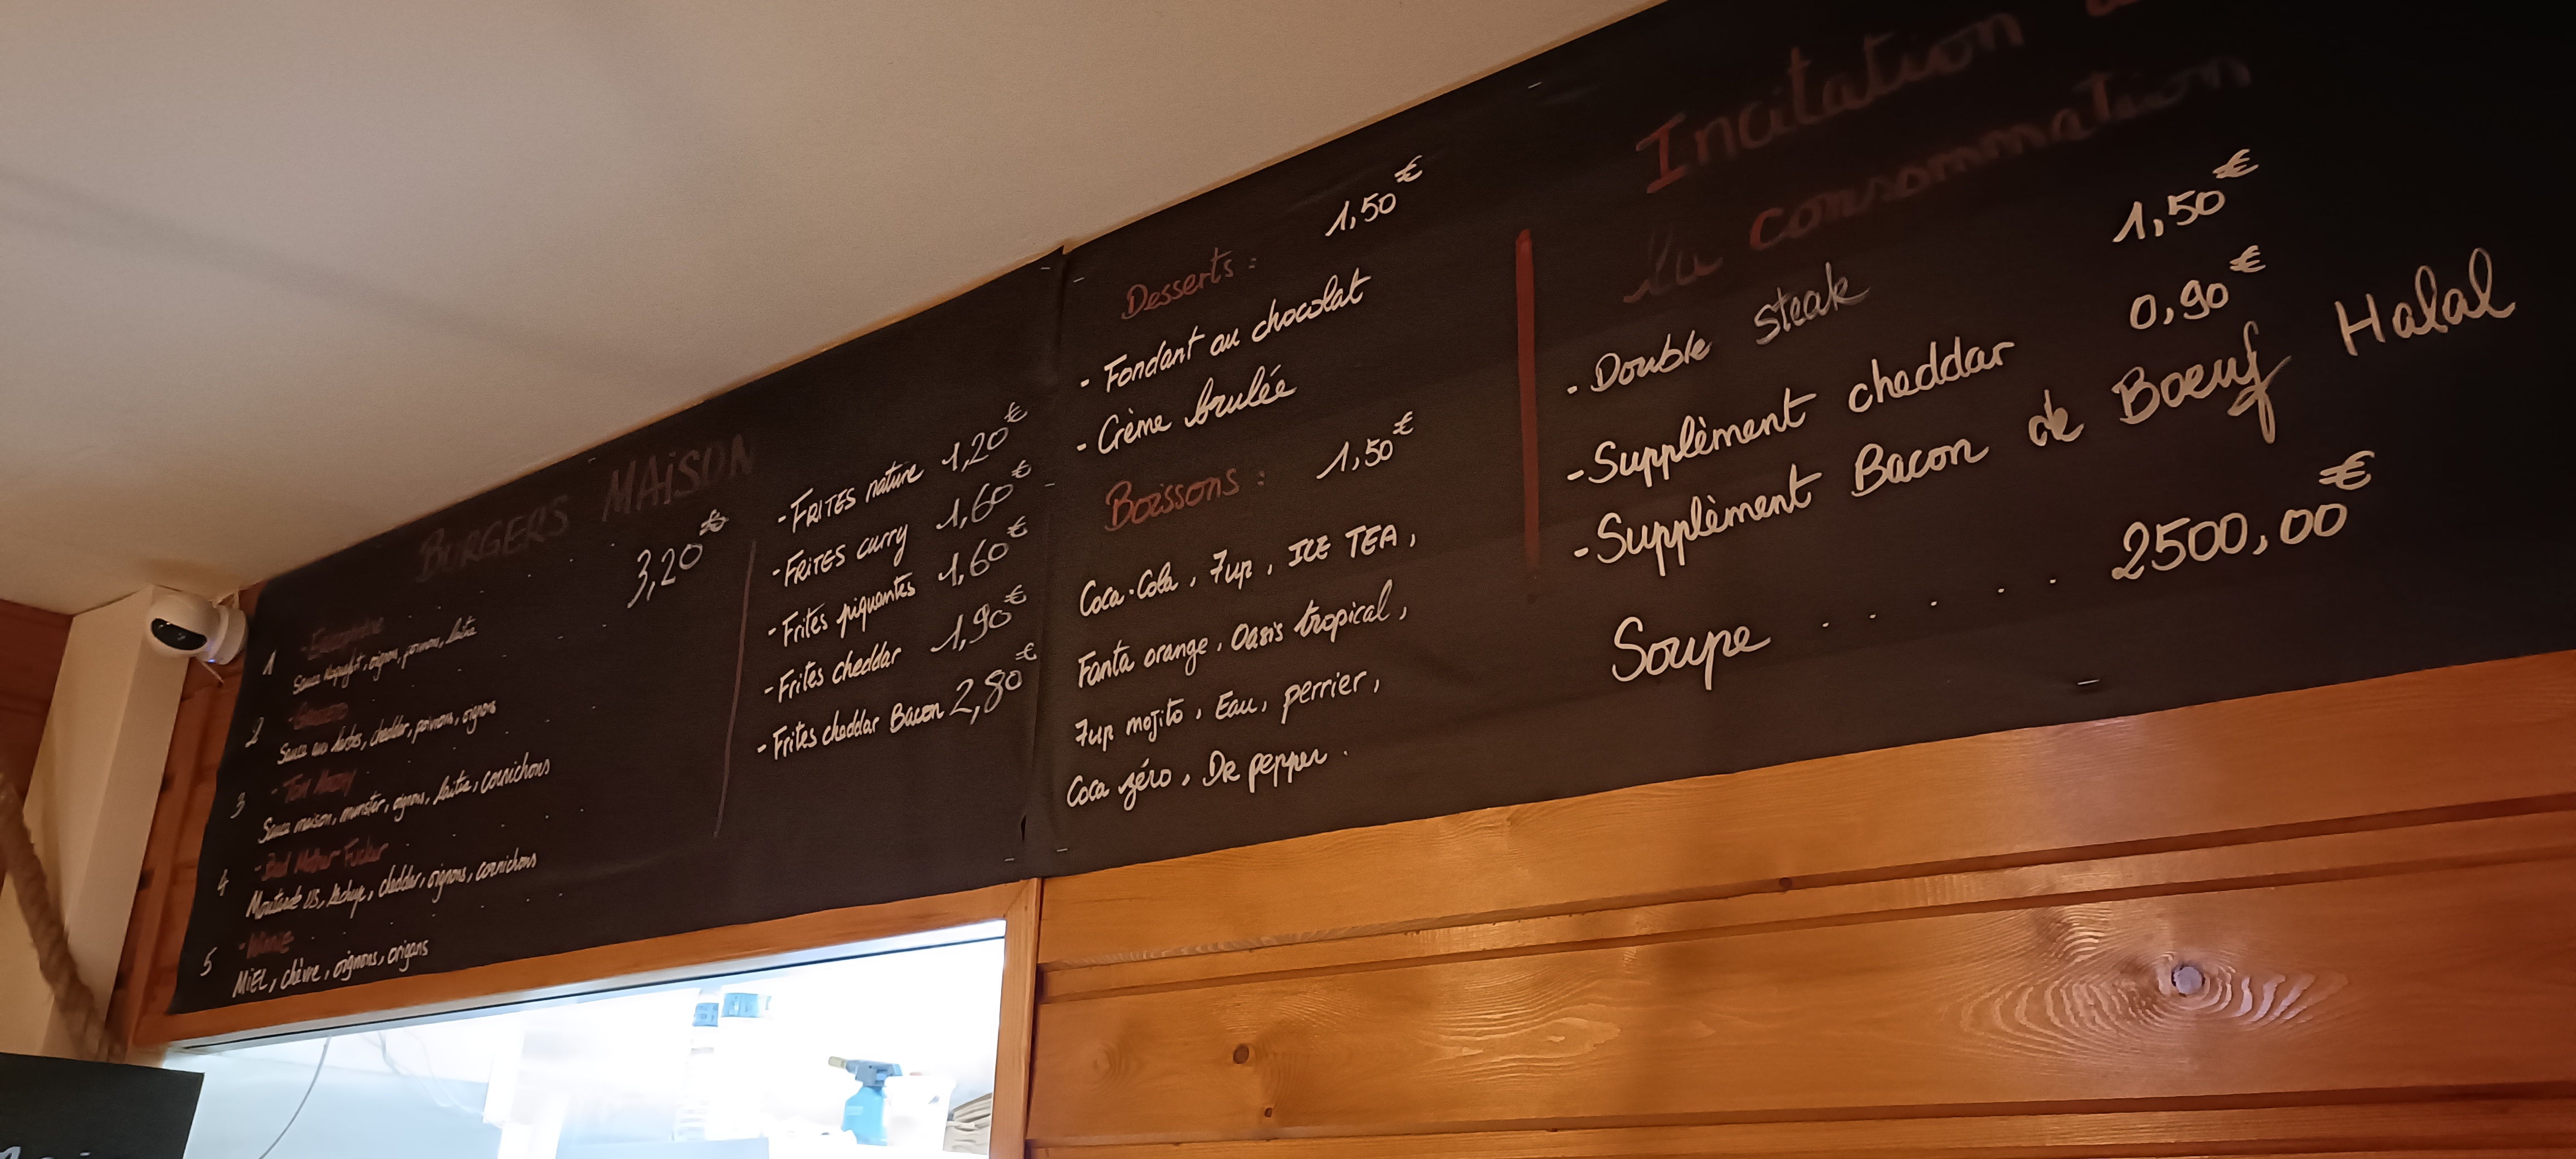 BURGERS MAiSON
3,20€
1
2
- Tom
3
Sauce maison, munster, oignons, laitue, cornichons
- Bad Mother Fucker
4
Moutarde US, ketchup, cheddar, oignons, cornichons
5
MiEL, chèvre, oignons, origans
- FRITES nature 1,20€
- FRITES curry 1,60€
- Frites piquantes 1,60€
- Frites cheddar 1,90€
- Frites cheddar Bacon 2,80€
Desserts : 1,50€
- Fondant au chocolat
- Crème brulée
Boissons : 1,50€
Coca-Cola, 7up, ICE TEA,
Fanta orange, Oasis tropical,
7up mojito, Eau, perrier,
Coca zéro, DR pepper.
Incitation à
la consommation
- Double steak 1,50€
- Supplèment cheddar 0,90€
- Supplèment Bacon de Boeuf Halal
Soupe . . . . . 2500,00€